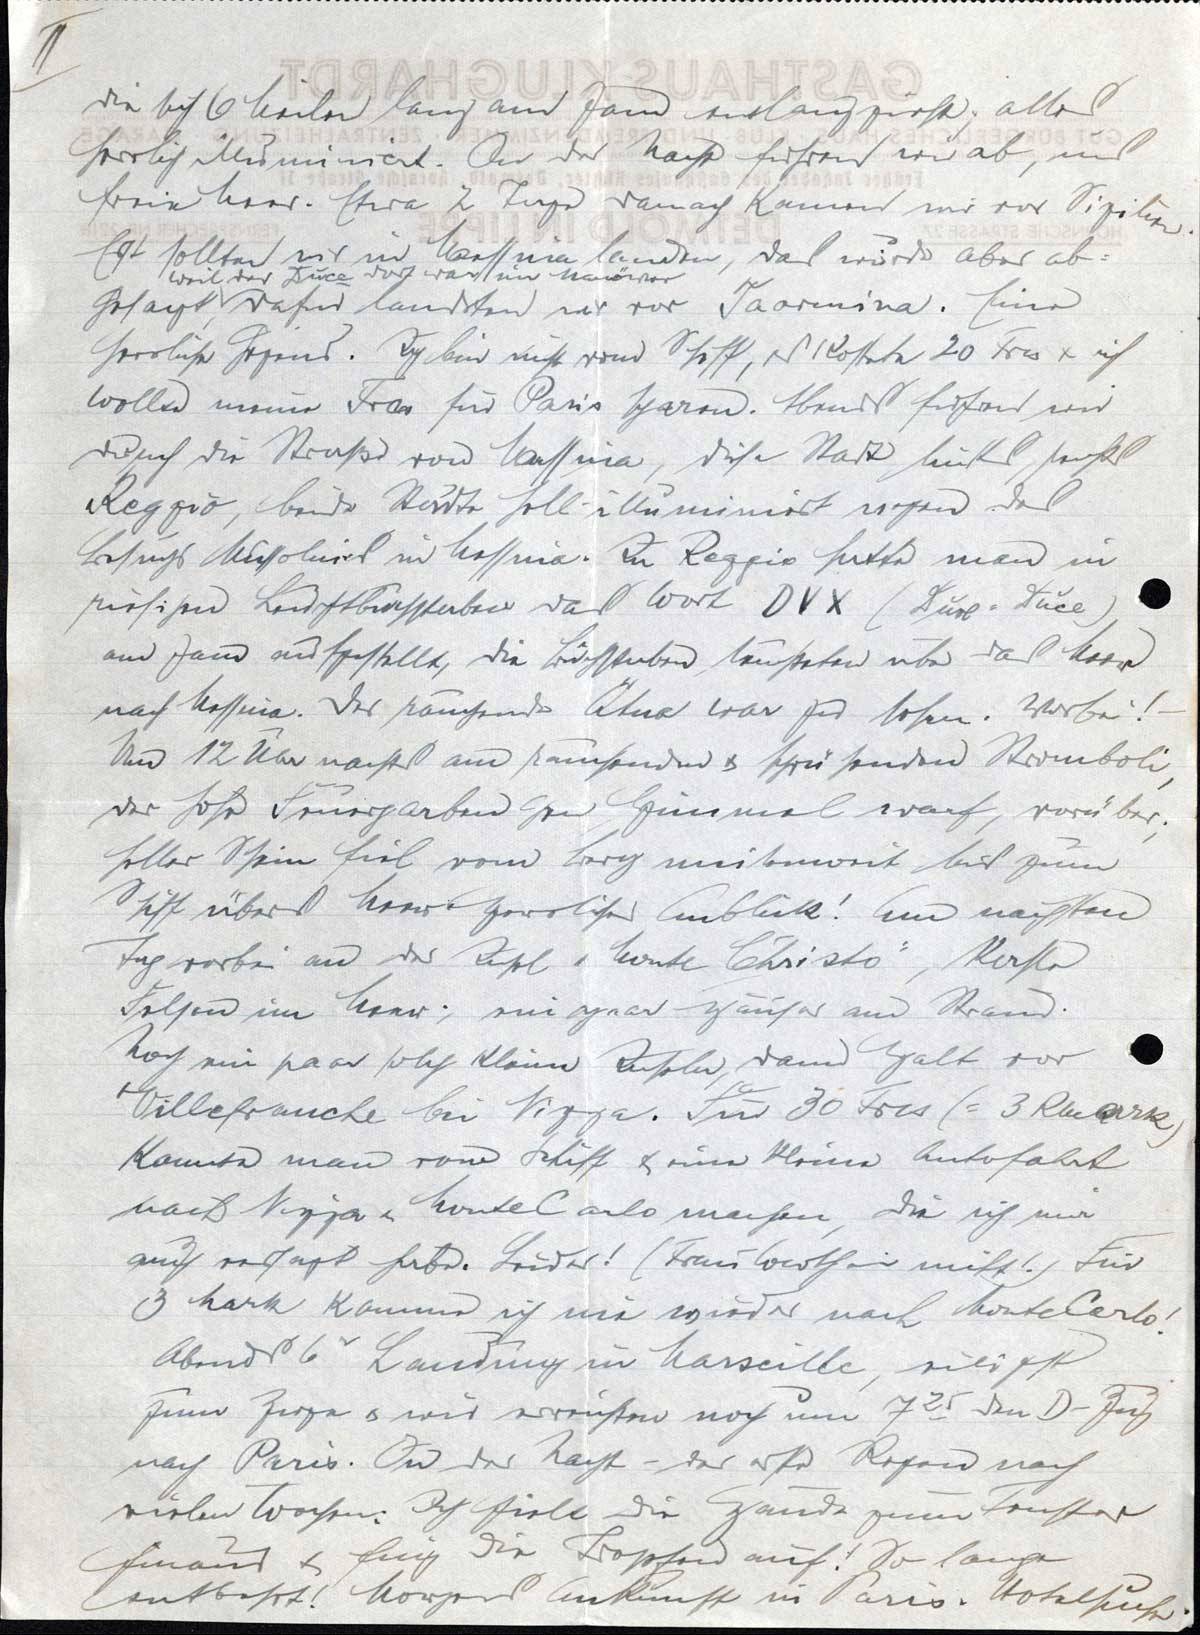 II
die sich 6 Meilen lang am Hang entlangzieht, alles
herrlich illuminiert. In der Nacht fuhren wir ab, ins
freie Meer. Etwa 2 Tage danach kamen wir vor Sizilien.
Erst sollten wir in Messina landen, das wurde aber ab=
weil der Duce dort war im Manöver
gesagt, dafür landeten wir vor Taormina. Eine
herrliche Gegend. Ich bin nicht vom Schiff, es kostete 20 Frcs & ich
wollte meine Frcs für Paris sparen. Abends fuhren wir
durch die Straße von Messina, diese Stadt links, rechts
Reggio, beide Städte hell illuminiert wegen des
Besuchs Mussolinis in Messina. In Reggio hatte man in
riesigen Leuchtbuchstaben das Wort DVX (Dux = Duce)
am Hang aufgestellt, die Buchstaben leuchteten über das Meer
nach Messina. Der rauchende Ätna war zu sehen. Vorbei! –
Um 12 Uhr nachts am rauchenden & sprühenden Stromboli,
der hohe Feuergarben gen Himmel warf, vorüber;
heller Schein fiel vom Berg meilenweit bis zum
Schiff übers Meer. Herrlicher Anblick! Am nächsten
Tag vorbei an der Insel „Monte Christo“,
Felsen im Meer; ein paar Häuser am Strand.
Noch ein paar solch kleine Inseln, dann Halt vor
Villefranche bei Nizza. Für 30 Frcs (= 3 Rmark)
konnte man vom Schiff & eine kleine Autofahrt
nach Nizza & Monte Carlo machen, die ich mir
auch versagt habe. Leider! (Frau nicht!) Für
3 Mark komme ich nie wieder nach Monte Carlo!
Abends 6 Landung in Marseille, eiligst
zum Zuge & wir erreichten noch um 7 25 den D-Zug
nach Paris. In der Nacht – der erste Regen nach
vielen Wochen. Ich hielt die Hände zum Fenster
hinaus & fing die Tropfen auf! So lange
entbehrt! Morgens Ankunft in Paris. Hotelsuche.
GASTHAUS KLUGHARDT
DETMOLD IN LIPPE